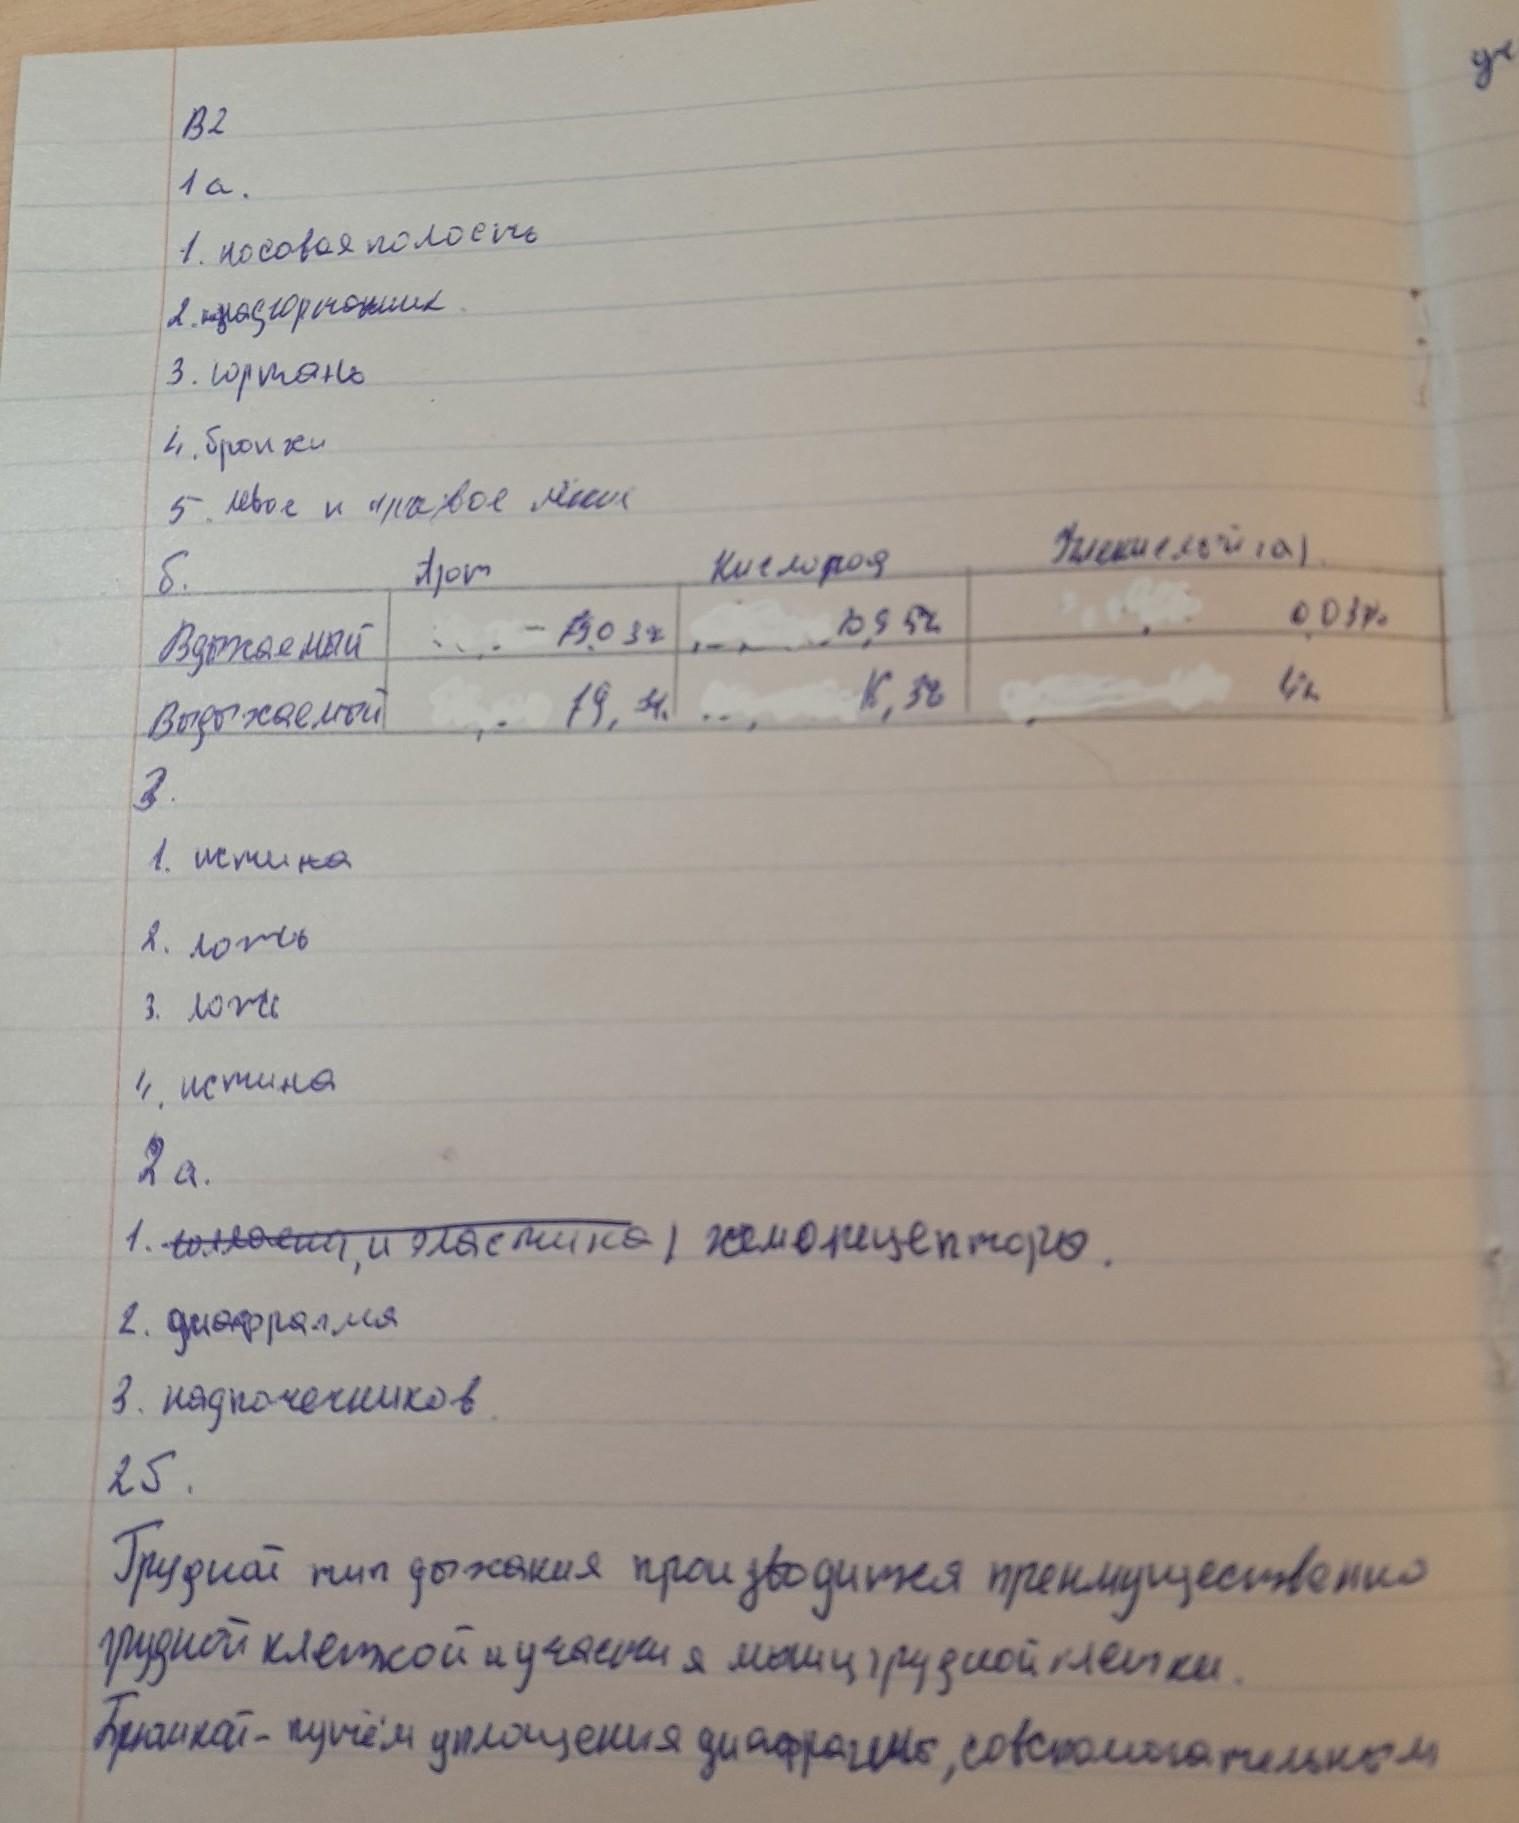 В2
1а.
1. носовая полость
2. надгортанник.
3. гортань
4. бронхи
5. левое и правое лёгкие
б. Азот Кислород Углекислый газ
Вдыхаемый - 79.03% 20,95% 0,03%
Выдыхаемый 79, % 16,3% 4%
3.
1. истина
2. ложь
3. ложь
4. истина
2а.
1. и эластина хеморецепторы.
2. диафрагма
3. надпочечников.
2б.
Грудной тип дыхания производится преимущественно
грудной клеткой и участия мышц грудной клетки.
Брюшной - путём уплощения диафрагмы, со вспомогательным